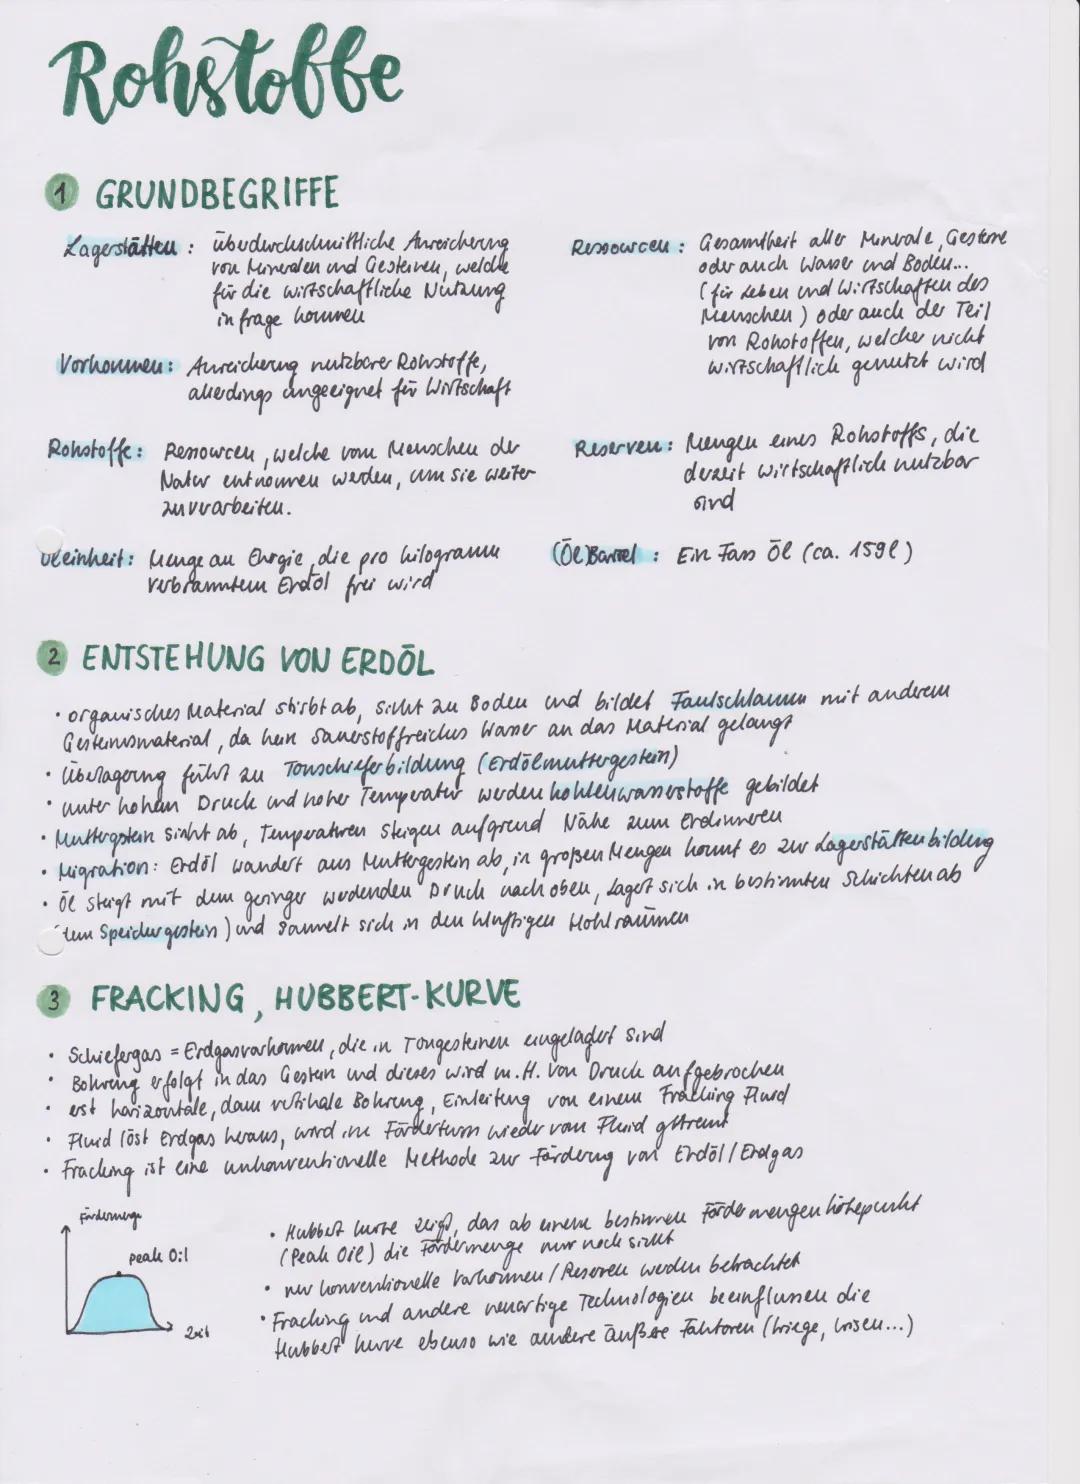 Rohstoffe
1 GRUNDBEGRIFFE
Lagerstätten : überdurchschnittliche Anreicherung
von Mineralen und Gesteinen, welche
für die wirtschaftliche Nutzung
in frage kommen
Vorkommen: Anreicherung nutzbarer Rohstoffe,
allerdings ungeeignet für Wirtschaft
Rohstoffe: Ressourcen, welche vom Menschen der
Natur entnommen werden, um sie weiter-
zuverarbeiten.
Öleinheit: Menge an Energie, die pro kilogramm
verbranntem Erdöl frei wird
Ressourcen : Gesamtheit aller Minerale, Gesteine
oder auch Wasser und Boden...
(für Leben und Wirtschaften des
Menschen) oder auch der Teil
von Rohstoffen, welcher nicht
wirtschaftlich genutzt wird
Reserven: Mengen eines Rohstoffs, die
derzeit wirtschaftlich nutzbar
sind
(Öl)Barrel : Ein Fass Öl (ca. 159l)
2 ENTSTEHUNG VON ERDÖL
• organisches Material stirbt ab, sinkt zu Boden und bildet Faulschlamm mit anderem
Gesteinsmaterial, da kein sauerstoffreiches Wasser an das Material gelangt
• Überlagerung führt zu Tonschieferbildung (Erdölmuttergestein)
• unter hohem Druck und hoher Temperatur werden kohlenwasserstoffe gebildet
• Muttergestein sinkt ab, Temperaturen steigen aufgrund Nähe zum Erdinneren
• Migration: Erdöl wandert aus Muttergestein ab, in großen Mengen kommt es zur Lagerstättenbildung
• Öl steigt mit dem geringer werdenden Druck nach oben, lagert sich in bestimmten Schichten ab
(dem Speichergestein) und sammelt sich in den klüftigen Hohlräumen
3 FRACKING, HUBBERT-KURVE
• Schiefergas = Erdgasvorkommen, die in Tongesteinen eingelagert sind
• Bohrung erfolgt in das Gestein und dieses wird m.H. von Druck aufgebrochen
• erst horizontale, dann vertikale Bohrung, Einleitung von einem Fracking Fluid
• Fluid löst Erdgas heraus, wird im Förderturm wieder vom Fluid getrennt
• Fracking ist eine unkonventionelle Methode zur Förderung von Erdöl/Erdgas
Fördermenge
peak Oil
Zeit
• Hubbert kurve zeigt, das ab einem bestimmten Fördermengenhöhepunkt
(Peak Oil) die Fördermenge nur noch sinkt
• nur konventionelle Vorkommen/Reserven werden betrachtet
• Fracking und andere neuartige Technologien beeinflussen die
Hubbert kurve ebenso wie andere äußere Faktoren (kriege, krisen...)